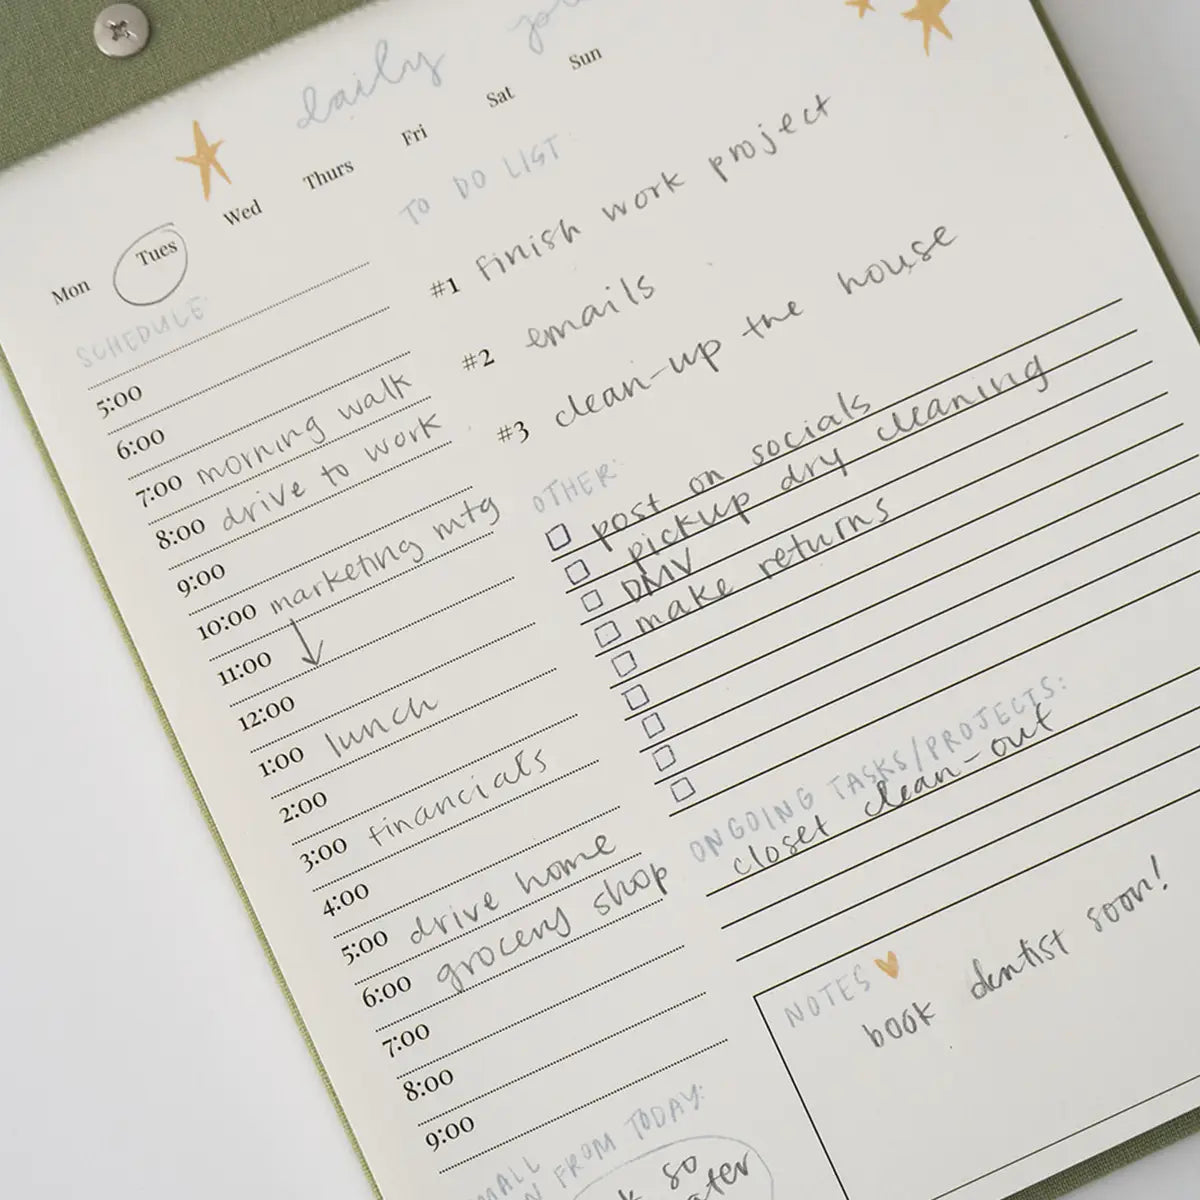 daily
Mon Tues Wed Thurs Fri Sat Sun
SCHEDULE
5:00
6:00
7:00 morning walk
8:00 drive to work
9:00
10:00 marketing mtg
11:00
12:00
1:00 lunch
2:00
3:00 financials
4:00
5:00 drive home
6:00 grocery shop
7:00
8:00
9:00
FROM TODAY:
so
TO DO LIST:
#1 finish work project
#2 emails
#3 clean-up the house
OTHER:
post on socials
pickup dry cleaning
DMV
make returns
ONGOING TASKS/PROJECTS:
closet clean-out
NOTES
book dentist soon!